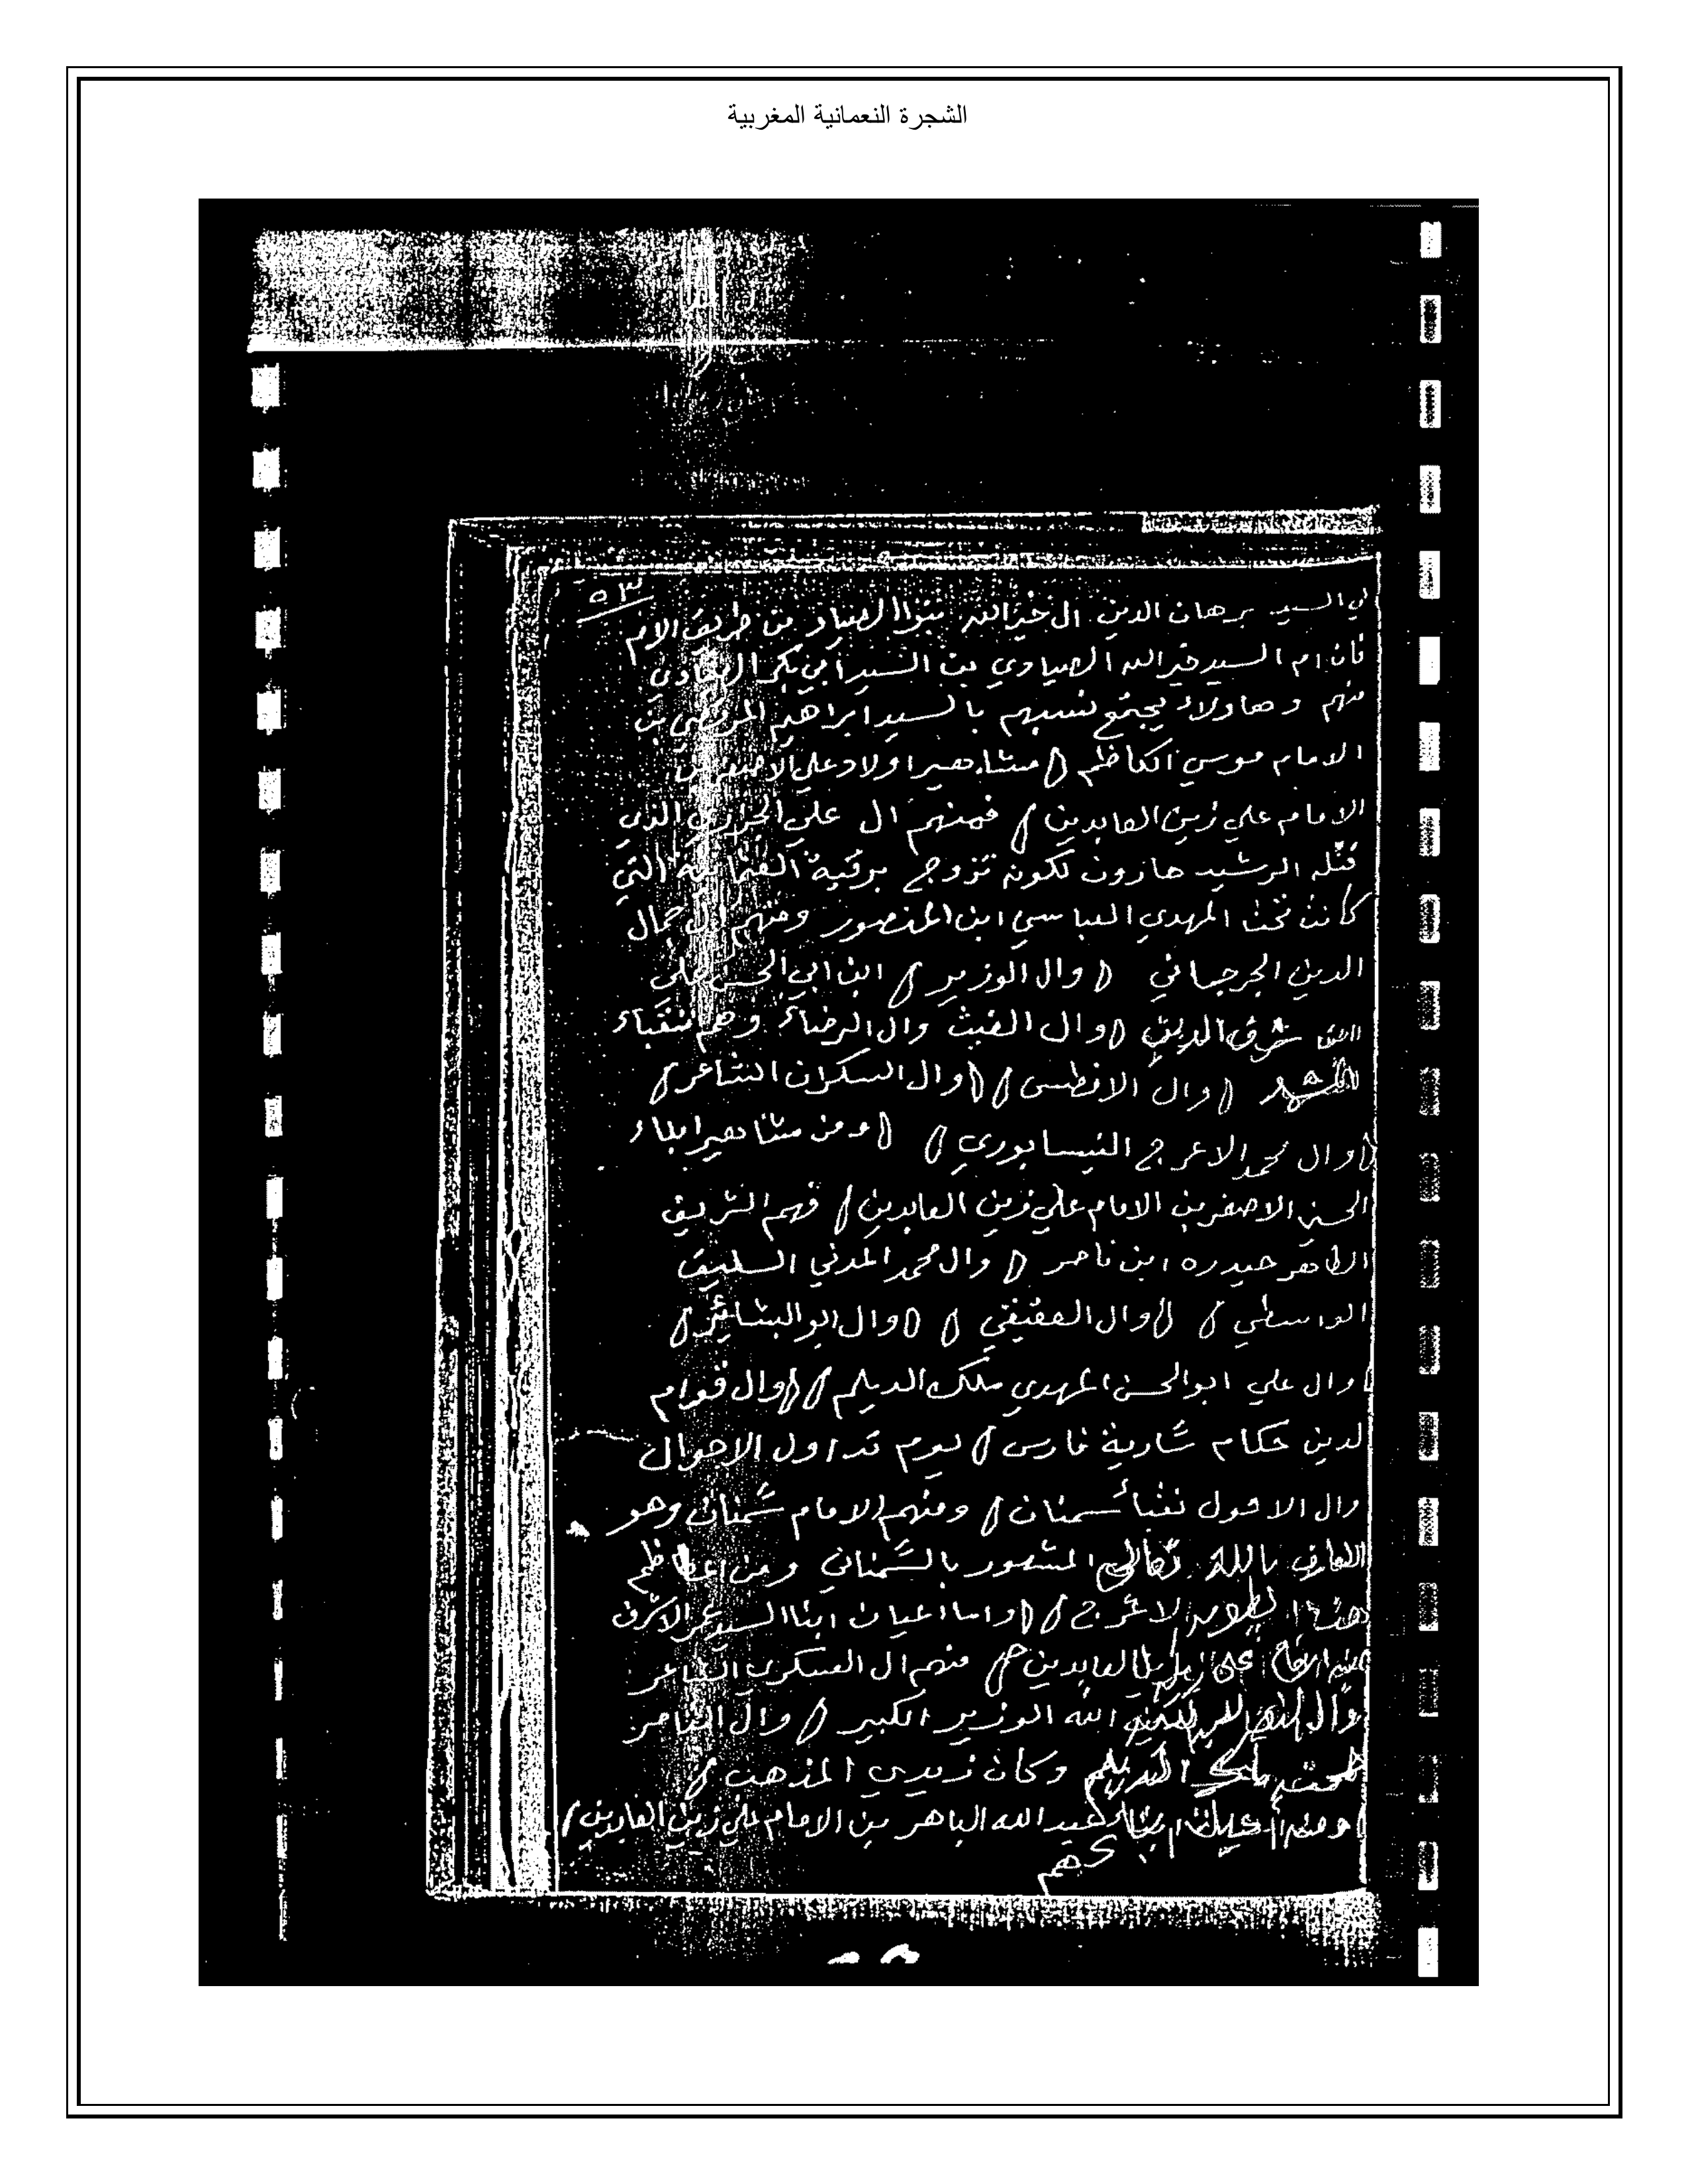 الشجرة النعمانية المغربية
٥٣
السيد برهان الدين ال خير الله بنوا الصياد من طريق الام
فان ام السيد خير الله الصيادي بنت السيد ابي بكر
منهم وهاولاء يجتمع نسبهم بالسيد ابراهيم المرتضى بن
الامام موسي الكاظم ( مشاهير اولاد علي الاصغر بن
الامام علي زين العابدين ) فمنهم ال علي الجزري الذي
قتله الرشيد هارون لكونه تزوج برقية العثمانية التي
كانت تحت المهدي العباسي ابن المنصور ومنهم ال جمال
الدين الجرجاني ( وال الوزير ) ابن ابي الحسن علي
شرف الدين ( وال الغيث وال الرضاء وهم نقباء
( وال الافطس ) ( وال السكران الشاعر )
( وال محمد الاعرج النيسابوري ) ( ومن مشاهير ابناء
الحسين الاصغر بن الامام علي زين العابدين ) فهم الشريف
الطاهر حيدره ابن ناصر ( وال محمد المدني السليق
الواسطي ) ( وال العقيقي ) ( وال ابو البشائر )
( وال علي ابو الحسن المهدي ملك الديلم ) ( وال قوام
الدين حكام سارية فارس ) ليوم تداول الاحوال
وال الاحول نقباء سمنان ) ومنهم الامام سمنان وهو
العارف بالله تعالى المشهور بالسمناني ومن اعاظم
الاعرج ) ( واما اعيان ابنا السيد عمر الاشرف
العابدين منهم ال العسكري الشاعر
الله الوزير الكبير ( وال الناصر
الديلم وكان زيدي المذهب )
( ابناء عبد الله الباهر بن الامام علي زين العابدين )